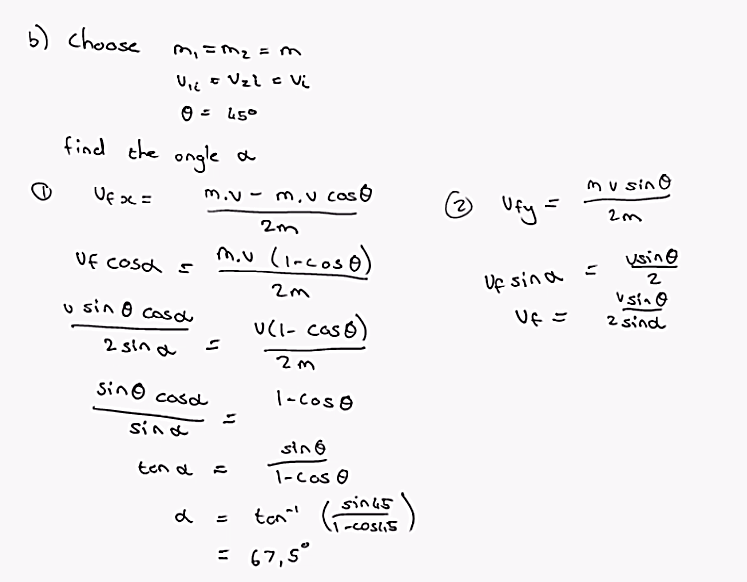 b) choose m₁ = m₂ = m
v₁ᵢ = v₂ᵢ = vᵢ
θ = 45°
find the angle α
① Vfx = (m.v - m.v cosθ) / 2m
Vf cosα = m.v (1-cosθ) / 2m
v sinθ cosα / 2 sinα = v(1-cosθ) / 2m
sinθ cosα / sinα = 1-cosθ
tanα = sinθ / (1-cosθ)
α = tan⁻¹ (sin45 / (1-cos45))
= 67,5°
② Vfy = m v sinθ / 2m
Vf sinα = v sinθ / 2
Vf = v sinθ / 2 sinα